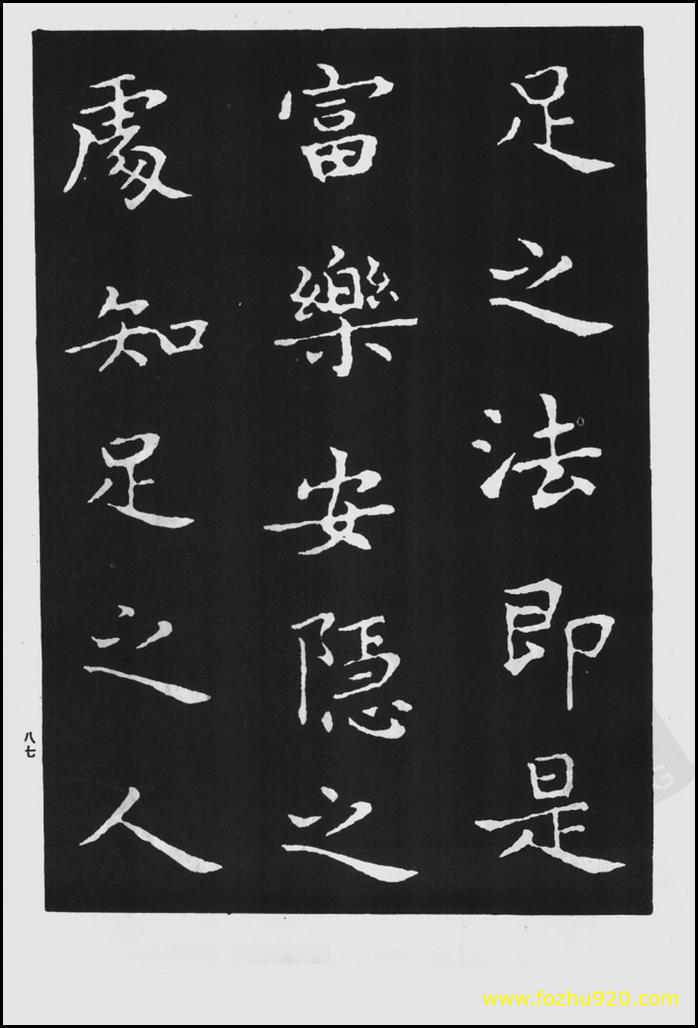 足之法即是
富樂安隱之
處知足之人
八七
www.fozhu920.com